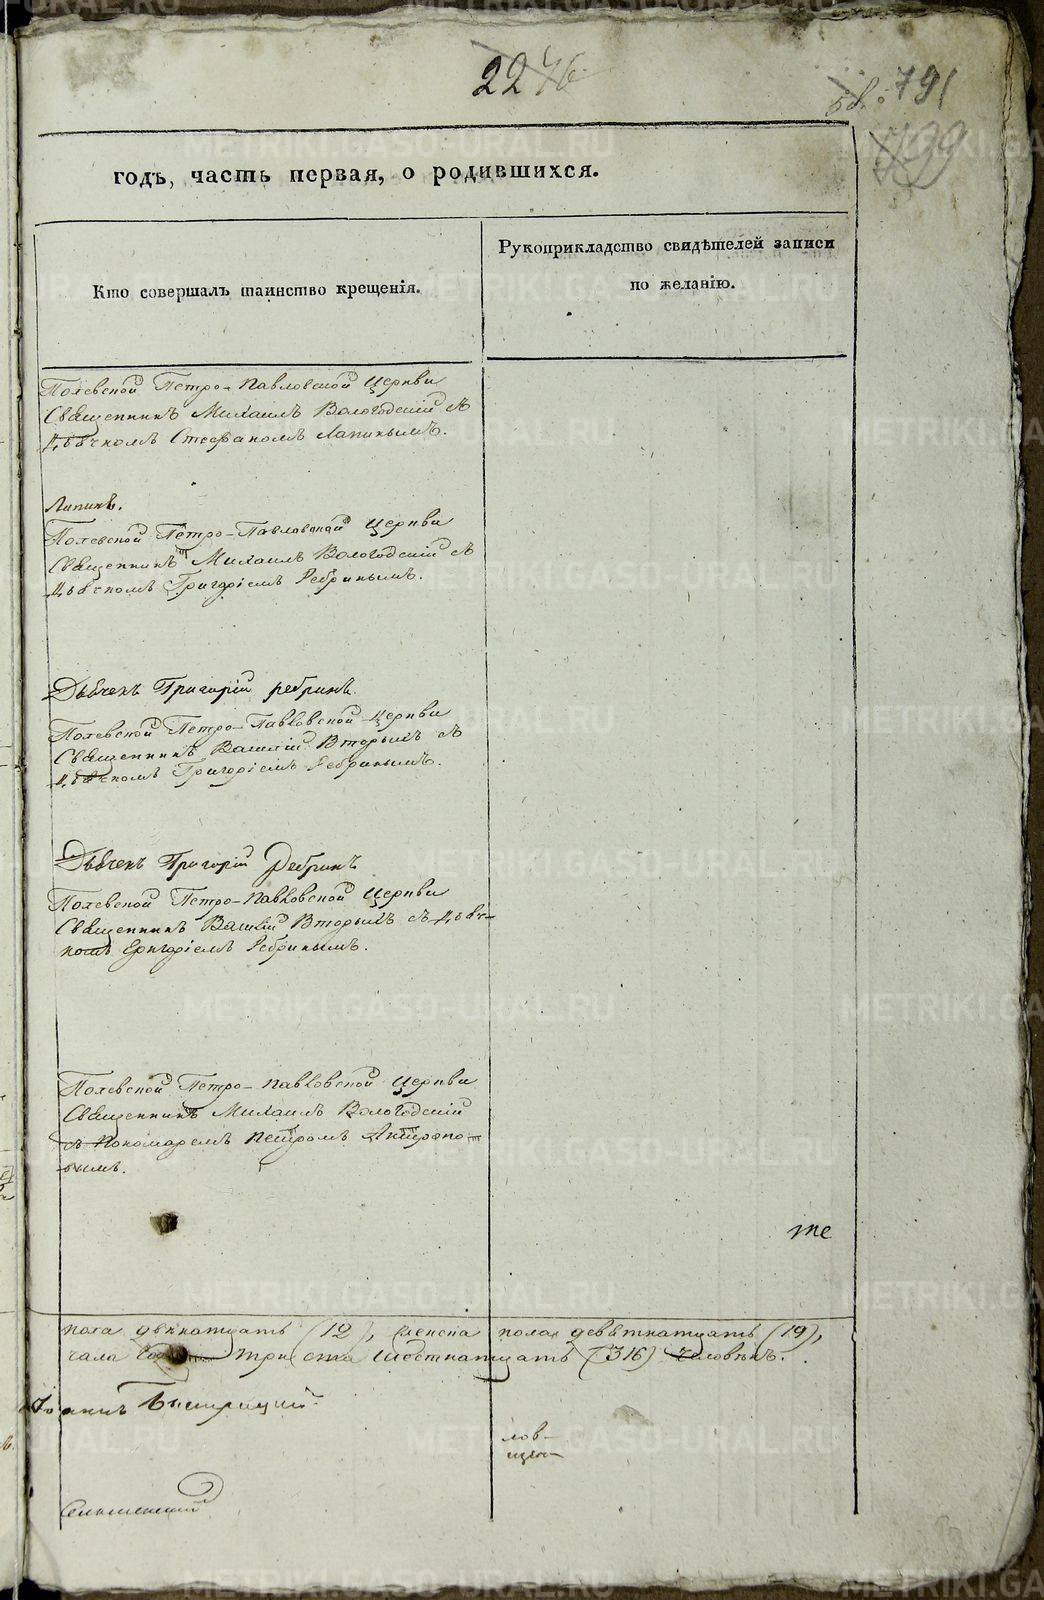 22 46
58. 791
739
годъ, часть первая, о родившихся.
Кто совершалъ таинство крещенія.
Рукоприкладство свидѣтелей записи
по желанію.
Полевской Петро-Павловской Церкви
Священникъ Михаилъ Вологодскій съ
Дьячкомъ Стефаномъ Лапинымъ.
Лапинъ.
Полевской Петро-Павловской Церкви
Священникъ Михаилъ Вологодскій съ
Дьячкомъ Григоріемъ Ребринымъ.
Дьячекъ Григорій Ребринъ.
Полевской Петро-Павловской Церкви
Священникъ Василій Вторыхъ съ
Дьячкомъ Григоріемъ Ребринымъ.
Дьячекъ Григорій Ребринъ
Полевской Петро-Павловской Церкви
Священникъ Василій Вторыхъ съ Дьяч-
комъ Григоріемъ Ребринымъ.
Полевской Петро-Павловской Церкви
Священникъ Михаилъ Вологодскій
съ Пономаремъ Петромъ Антропо-
вымъ.
те
пола двенатцать (12), женска пола девятнатцать (19),
чала триста шестнатцать (316) человѣкъ.
Іоаннъ
лов-
METRIKI.GASO-URAL.RU